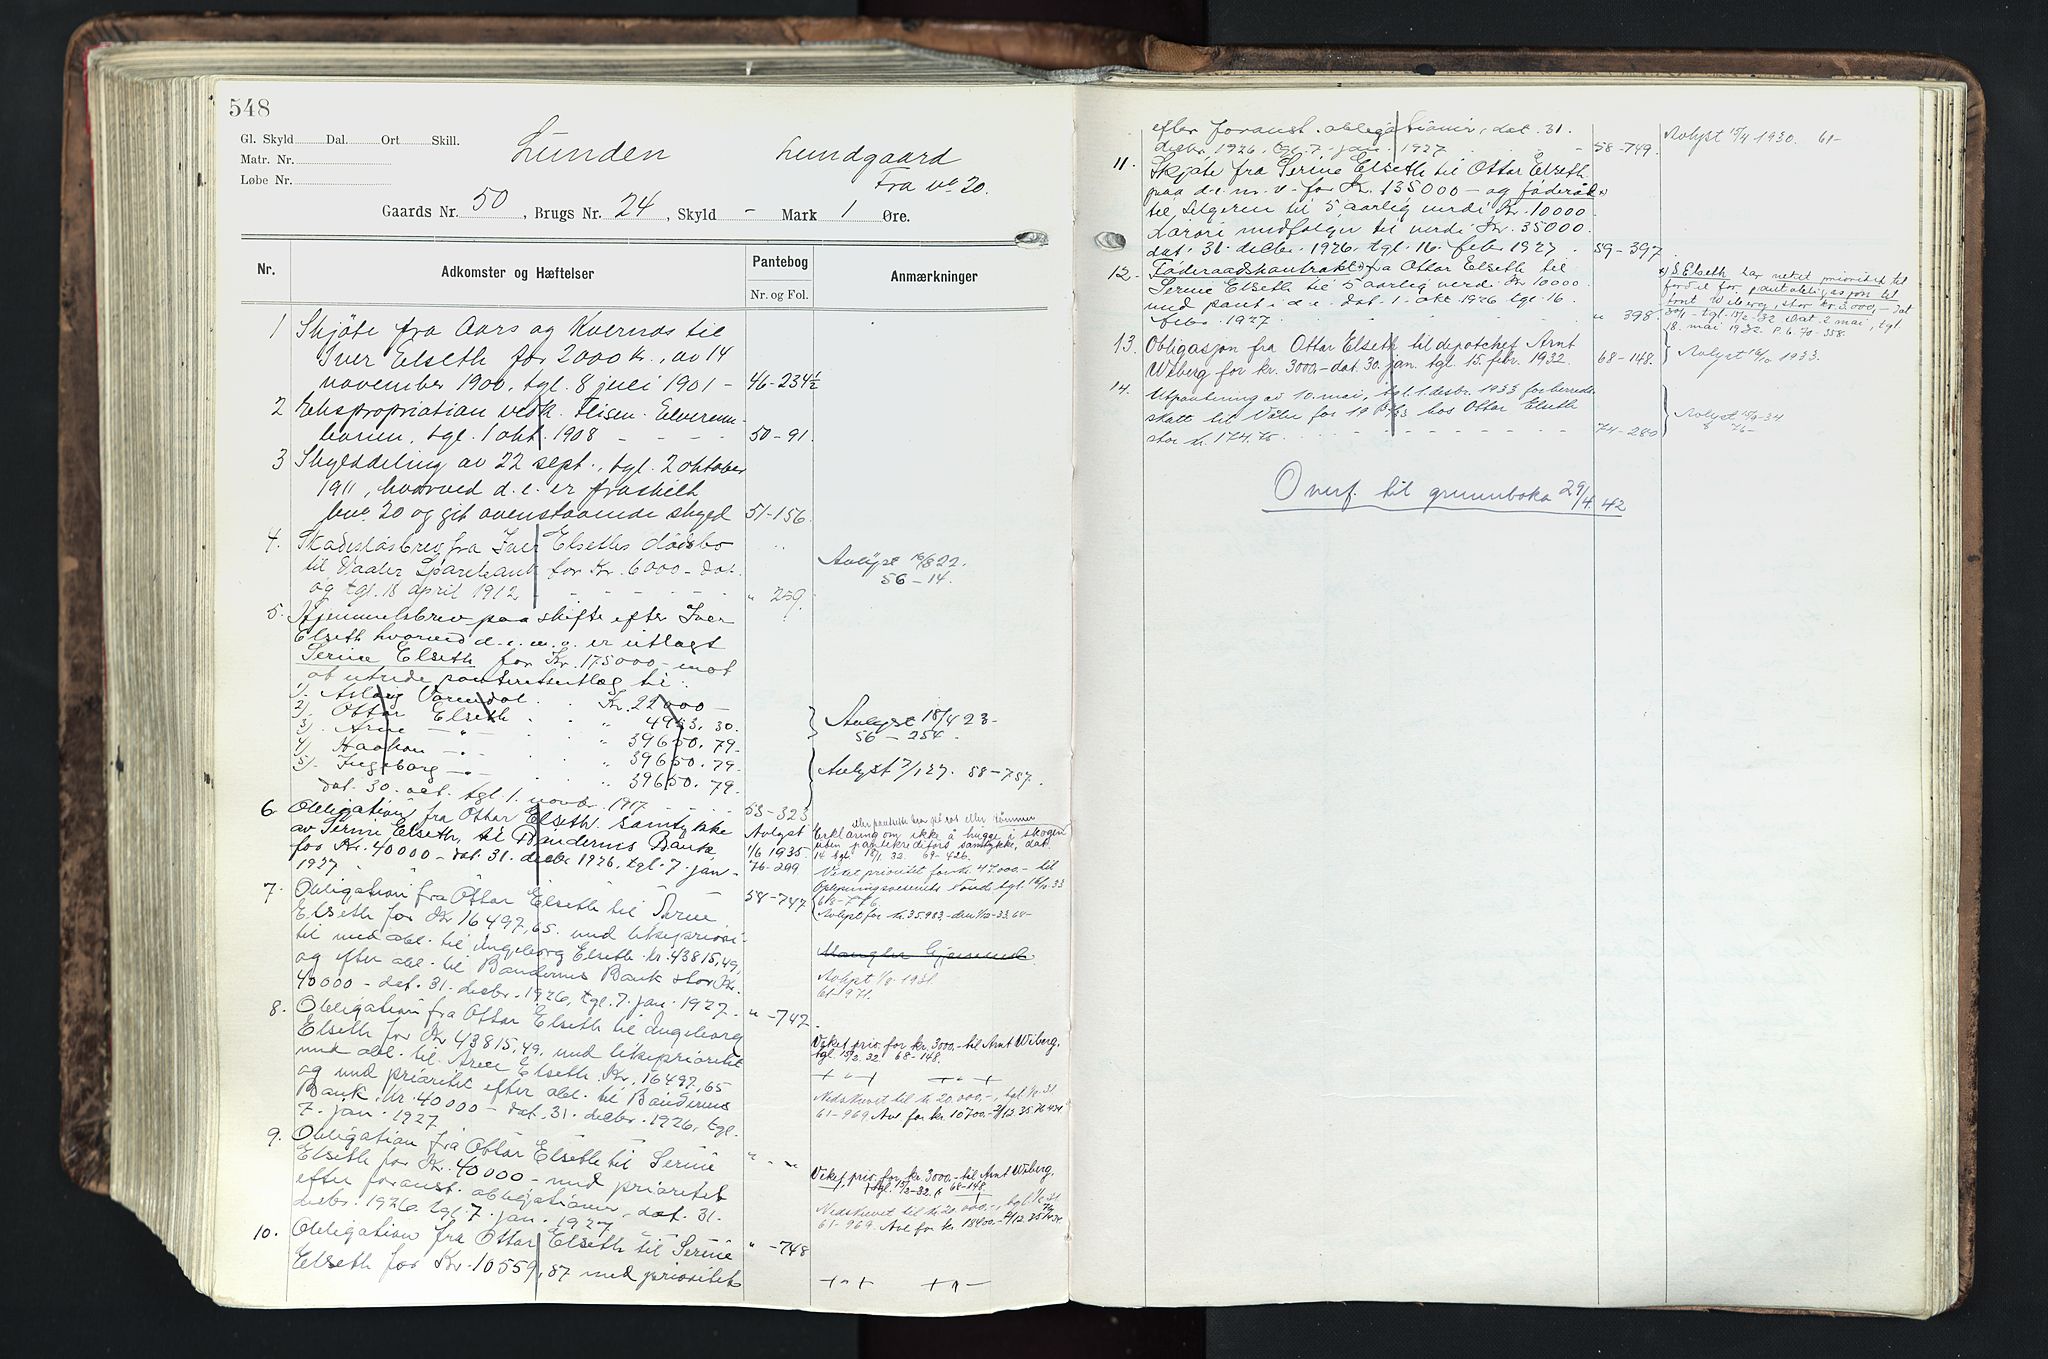 548
Gl. Skyld Dal. Ort Skill.
Matr. Nr.
Løbe Nr.
Lunden Lundgaard
Fra no 20.
Gaards Nr. 50, Brugs Nr. 24, Skyld - Mark 1 Øre.
Nr.
Adkomster og Hæftelser
Pantebog
Nr. og Fol.
Anmærkninger
1 Skjøte fra Aars og Kvernos til
Iver Elseth for 2000 kr., av 14
november 1900, tgl. 8 juli 1901 - 46-234½
2 Ekspropriation vedk. Flisen-Elverum-
banen, tgl. 1 okt. 1908 - - - - 50-91.
3 Skylddeling av 22 sept., tgl. 2 oktober
1911, hvorved d. e. er fraskilt
bno. 20 og git ovenstaaende skyld 51-156.
4. Skadesløsbrev fra Iver Elseths dødsbo
til Vaaler Sparebank for Kr. 6000 - dat.
og tgl. 18 april 1912 - - - - - " 259.
Avlyst 16/8 22.
56-14.
5. Hjemmelsbrev paa skifte efter Iver
Elseth hvorved d. e. m. v. er utlagt
Serine Elseth for Kr. 175000 - mot
at utrede panteretsutlæg til:
1). Aslaug Vorundal . . Kr. 22000 -
2). Ottar Elseth . . " 4983, 30.
3). Arne - " - . . " 39650, 79.
4). Haakon - " - . . " 39650, 79.
5). Ingeborg - " - . . " 39650, 79.
dat. 30. okt. tgl. 1. novbr. 1917 53-323
Avlyst 18/4 23-
56-254.
Avlyst 7/1 27. 58-757.
6. Obligation fra Ottar Elseth, samtykke
av Serine Elseth, til Bøndernes Bank
for Kr. 40000 - dat. 31. decbr. 1926, tgl. 7. jan.
1927 58-747
Avlyst
1/6 1935
76-299
eller pantsette hus på rot eller tømmer
Erklæring om ikke å hugge i skogen
uten pantekreditors samtykke, dat.
14 tgl. 18/1 32. 69-426.
Veket prioritet for kr. 47.000.- til
Opløsningsvesenets Fond tgl. 16/10 33
68-776.
Avlyst for kr. 35983,-
7. Obligation fra Ottar Elseth til Arne
Elseth for Kr. 16497,65. med likepriori-
tet med obl. til Ingeborg Elseth kr. 43815,49,
og efter obl. til Bøndernes Bank stor Kr.
40000 - dat. 31. decbr. 1926, tgl. 7. jan. 1927. " -747.
Mangler Hjemmel.
Avlyst 1/8 1931.
61-971.
8. Obligation fra Ottar Elseth til Ingeborg
Elseth for Kr. 43815,49, med likeprioritet
med obl. til Arne Elseth Kr. 16497,65
og med prioritet efter obl. til Bøndernes
Bank Kr. 40000 - dat. 31. decbr. 1926, tgl.
7. jan. 1927 " - "
Veket prio. for kr. 3000.- til Arnt Wiberg,
tgl. 15/2 32 68-148.
Nedskrevet til kr 20.000,-,
61-969. Avl for kr. 10700.-
9. Obligation fra Ottar Elseth til Serine
Elseth for Kr. 40000 - med prioritet
efter foranst. obligationer, dat. 31.
decbr. 1926, tgl. 7. jan. 1927
Veket prio. for kr. 3000.- til Arnt Wiberg,
tgl. 15/2-32 68-148.
61-969. Avl for kr. 18400.-
10. Obligation fra Ottar Elseth til Serine " -748
Elseth for Kr. 10559,87 med prioritet
efter foranst. obligationer, dat. 31.
decbr. 1926, tgl. 7. jan. 1927 58-749. Avlyst 15/4 1930. 61-
11. Skjøte fra Serine Elseth til Ottar Elseth
paa d. e. m. v. for Kr. 135000 - og føderåd x)
til selgeren til 5 aarlig verdi Kr. 10000.
Løsøre medfølger til verdi Kr. 35000.
dat. 31. decbr. 1926, tgl. 16. febr. 1927 59-397
12. Føderaadskontrakt x) fra Ottar Elseth til
Serine Elseth til 5 aarlig verdi Kr. 10000.
med pant i d. e. dat. 1. okt 1926 tgl. 16.
febr. 1927 " 398
x) S. Elseth har veket prioritet til
fordel for pantobligasjon til
Arnt Wiberg, stor kr. 3.000,- dat
30/1 - tgl. 15/2-32 Dat. 2 mai, tgl.
18. mai 1932. P.b. 70-358.
13. Obligasjon fra Ottar Elseth til depotchef Arnt
Wiberg for kr. 3000.- dat. 30. jan. tgl. 15. febr. 1932. 68-148. Avlyst 16/10 1933.
14. Utpantning av 10. mai, tgl. 1. desbr. 1933 for herreds-
skatt til Våler for 1932/33 hos Ottar Elseth
stor kr. 174.75 74-280
Avlyst 15/9-34
Overf. til grunnboka 29/4. 42